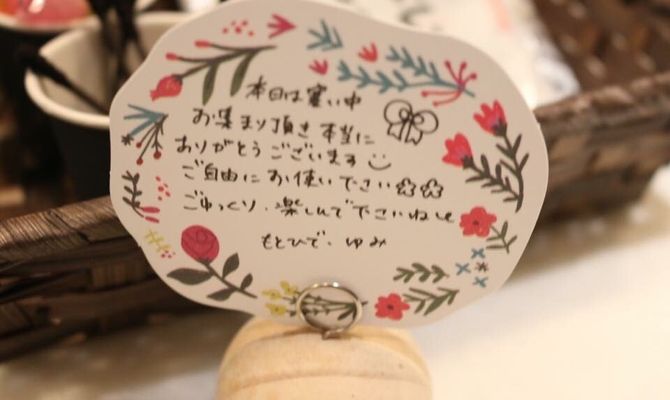 本日は寒い中
お集まり頂き本当に
ありがとうございます
ご自由にお使い下さい
ごゆっくり、楽しんで下さいね
もとひで・ゆみ